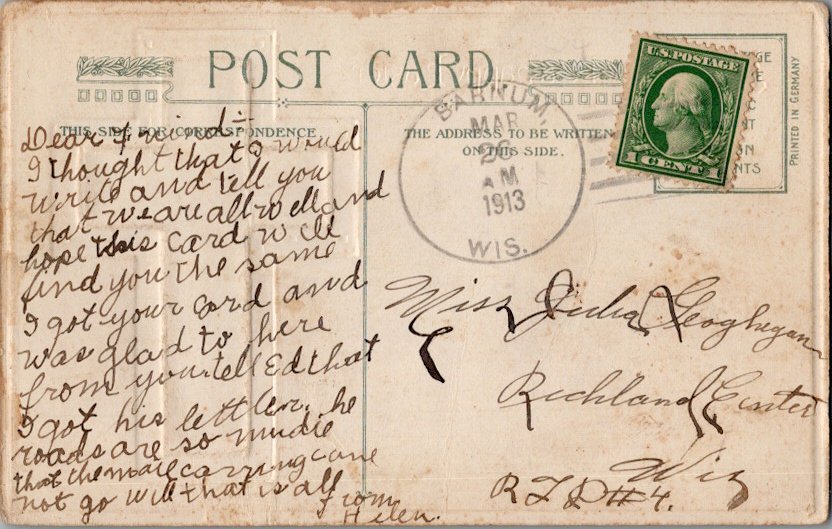 POST CARD
THIS SIDE FOR CORRESPONDENCE
THE ADDRESS TO BE WRITTEN
ON THIS SIDE.
BARNUM,
MAR
26
AM
1913
WIS.
U.S. POSTAGE
1 CENT 1
PRINTED IN GERMANY
Dear Friend:-
I thought that I would
write and tell you
that we are all well and
hope this card will
find you the same
I got your card and
was glad to here
from you. tell Ed that
I got his letter. he
roads are so mudie
that the male carring cane
not go will that is all
From
Helen.
Miss Julia Geoghegan
Richland Center
Wis
R F D #4.